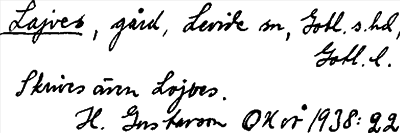 Lajves, gård, Levide sn, Gotl. s. hd,
Gotl. l.
Skrives även Lojves.
H. Gustavson OH så 1938: 22